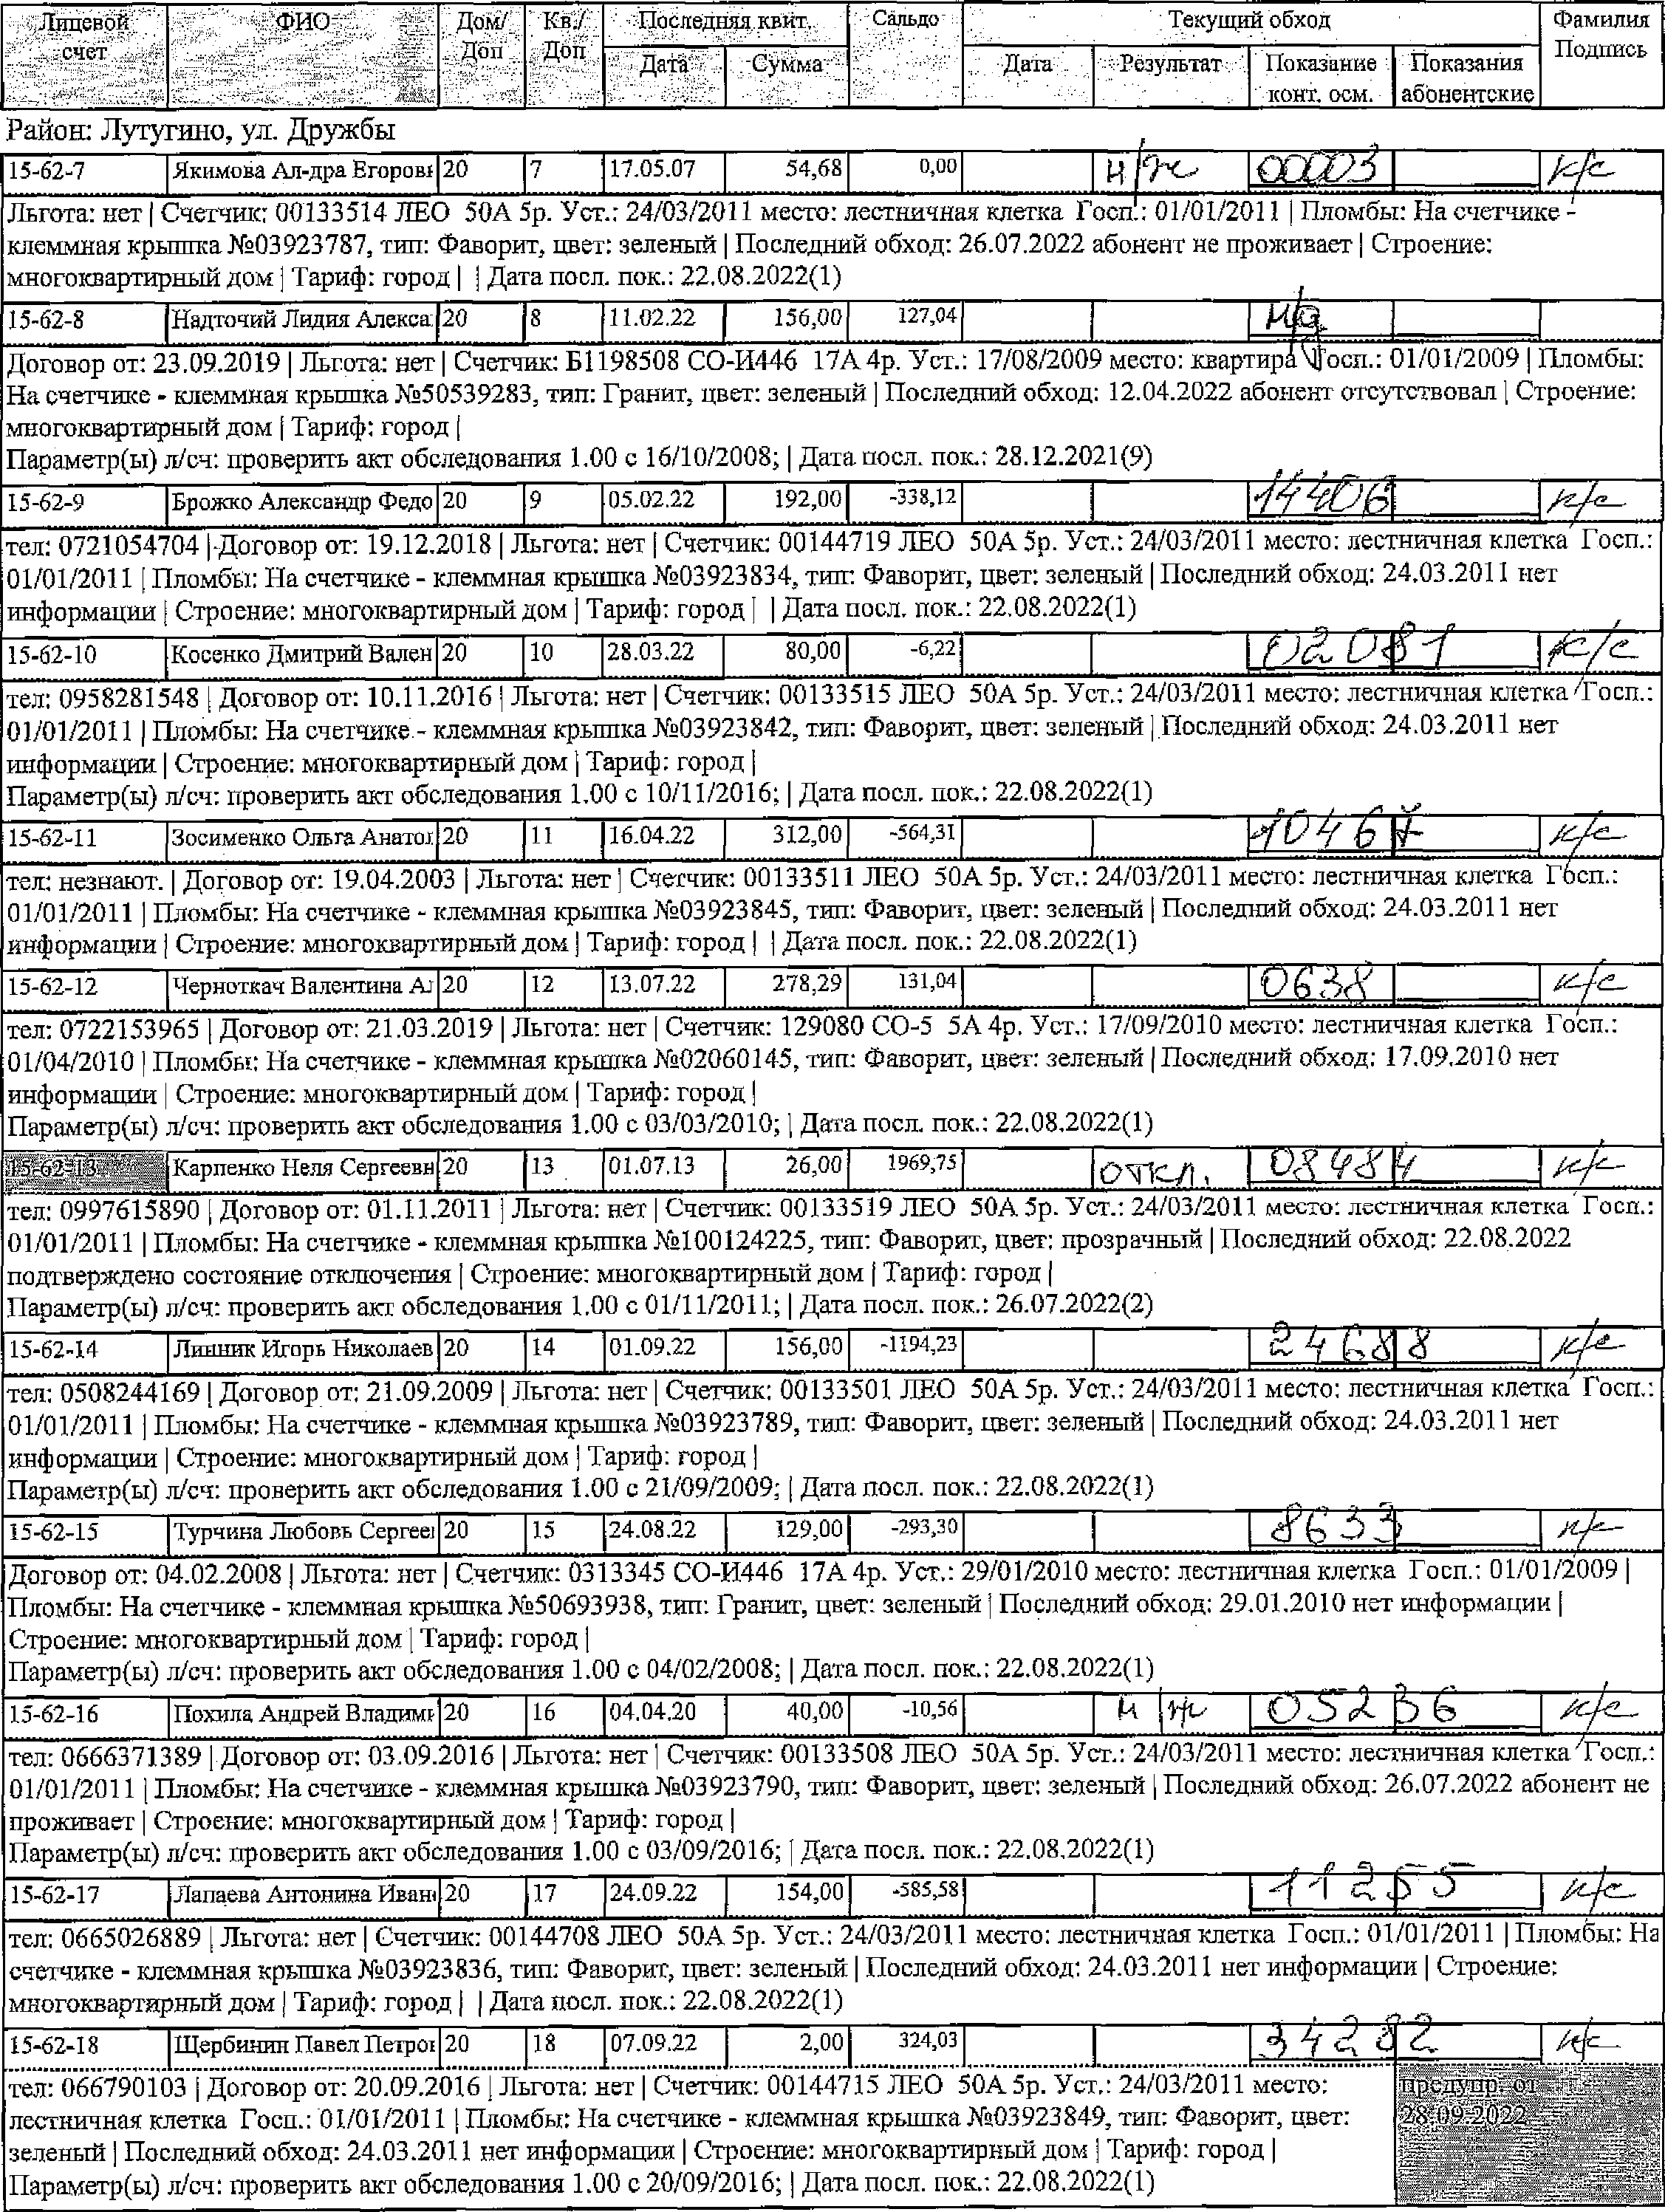 Лицевой счет ФИО Дом/Доп Кв./Доп Последняя квит. Сальдо Текущий обход Фамилия Подпись
Дата Сумма Дата Результат Показание конт. осм. Показания абонентские
Район: Лутугино, ул. Дружбы
15-62-7 Якимова Ал-дра Егоровн 20 7 17.05.07 54,68 0,00 н/ж 00003 к/с
Льгота: нет | Счетчик: 00133514 ЛЕО 50А 5р. Уст.: 24/03/2011 место: лестничная клетка Госп.: 01/01/2011 | Пломбы: На счетчике -
клеммная крышка №03923787, тип: Фаворит, цвет: зеленый | Последний обход: 26.07.2022 абонент не проживает | Строение:
многоквартирный дом | Тариф: город | | Дата посл. пок.: 22.08.2022(1)
15-62-8 Надточий Лидия Алекса 20 8 11.02.22 156,00 127,04 н/д
Договор от: 23.09.2019 | Льгота: нет | Счетчик: Б1198508 СО-И446 17А 4р. Уст.: 17/08/2009 место: квартира Госп.: 01/01/2009 | Пломбы:
На счетчике - клеммная крышка №50539283, тип: Гранит, цвет: зеленый | Последний обход: 12.04.2022 абонент отсутствовал | Строение:
многоквартирный дом | Тариф: город |
Параметр(ы) л/сч: проверить акт обследования 1.00 с 16/10/2008; | Дата посл. пок.: 28.12.2021(9)
15-62-9 Брожко Александр Федо 20 9 05.02.22 192,00 -338,12 14406 к/с
тел: 0721054704 | Договор от: 19.12.2018 | Льгота: нет | Счетчик: 00144719 ЛЕО 50А 5р. Уст.: 24/03/2011 место: лестничная клетка Госп.:
01/01/2011 | Пломбы: На счетчике - клеммная крышка №03923834, тип: Фаворит, цвет: зеленый | Последний обход: 24.03.2011 нет
информации | Строение: многоквартирный дом | Тариф: город | | Дата посл. пок.: 22.08.2022(1)
15-62-10 Косенко Дмитрий Вален 20 10 28.03.22 80,00 -6,22 02081 к/с
тел: 0958281548 | Договор от: 10.11.2016 | Льгота: нет | Счетчик: 00133515 ЛЕО 50А 5р. Уст.: 24/03/2011 место: лестничная клетка Госп.:
01/01/2011 | Пломбы: На счетчике - клеммная крышка №03923842, тип: Фаворит, цвет: зеленый | Последний обход: 24.03.2011 нет
информации | Строение: многоквартирный дом | Тариф: город |
Параметр(ы) л/сч: проверить акт обследования 1.00 с 10/11/2016; | Дата посл. пок.: 22.08.2022(1)
15-62-11 Зосименко Ольга Анатол 20 11 16.04.22 312,00 -564,31 10467 к/с
тел: незнают. | Договор от: 19.04.2003 | Льгота: нет | Счетчик: 00133511 ЛЕО 50А 5р. Уст.: 24/03/2011 место: лестничная клетка Госп.:
01/01/2011 | Пломбы: На счетчике - клеммная крышка №03923845, тип: Фаворит, цвет: зеленый | Последний обход: 24.03.2011 нет
информации | Строение: многоквартирный дом | Тариф: город | | Дата посл. пок.: 22.08.2022(1)
15-62-12 Черноткач Валентина Ал 20 12 13.07.22 278,29 131,04 0638 к/с
тел: 0722153965 | Договор от: 21.03.2019 | Льгота: нет | Счетчик: 129080 СО-5 5А 4р. Уст.: 17/09/2010 место: лестничная клетка Госп.:
01/04/2010 | Пломбы: На счетчике - клеммная крышка №02060145, тип: Фаворит, цвет: зеленый | Последний обход: 17.09.2010 нет
информации | Строение: многоквартирный дом | Тариф: город |
Параметр(ы) л/сч: проверить акт обследования 1.00 с 03/03/2010; | Дата посл. пок.: 22.08.2022(1)
15-62-13 Карпенко Неля Сергеевн 20 13 01.07.13 26,00 1969,75 откл. 08484 к/с
тел: 0997615890 | Договор от: 01.11.2011 | Льгота: нет | Счетчик: 00133519 ЛЕО 50А 5р. Уст.: 24/03/2011 место: лестничная клетка Госп.:
01/01/2011 | Пломбы: На счетчике - клеммная крышка №100124225, тип: Фаворит, цвет: прозрачный | Последний обход: 22.08.2022
подтверждено состояние отключения | Строение: многоквартирный дом | Тариф: город |
Параметр(ы) л/сч: проверить акт обследования 1.00 с 01/11/2011; | Дата посл. пок.: 26.07.2022(2)
15-62-14 Линник Игорь Николаев 20 14 01.09.22 156,00 -1194,23 24688 к/с
тел: 0508244169 | Договор от: 21.09.2009 | Льгота: нет | Счетчик: 00133501 ЛЕО 50А 5р. Уст.: 24/03/2011 место: лестничная клетка Госп.:
01/01/2011 | Пломбы: На счетчике - клеммная крышка №03923789, тип: Фаворит, цвет: зеленый | Последний обход: 24.03.2011 нет
информации | Строение: многоквартирный дом | Тариф: город |
Параметр(ы) л/сч: проверить акт обследования 1.00 с 21/09/2009; | Дата посл. пок.: 22.08.2022(1)
15-62-15 Турчина Любовь Сергеев 20 15 24.08.22 129,00 -293,30 8633 к/с
Договор от: 04.02.2008 | Льгота: нет | Счетчик: 0313345 СО-И446 17А 4р. Уст.: 29/01/2010 место: лестничная клетка Госп.: 01/01/2009 |
Пломбы: На счетчике - клеммная крышка №50693938, тип: Гранит, цвет: зеленый | Последний обход: 29.01.2010 нет информации |
Строение: многоквартирный дом | Тариф: город |
Параметр(ы) л/сч: проверить акт обследования 1.00 с 04/02/2008; | Дата посл. пок.: 22.08.2022(1)
15-62-16 Похила Андрей Владими 20 16 04.04.20 40,00 -10,56 н/ж 05236 к/с
тел: 0666371389 | Договор от: 03.09.2016 | Льгота: нет | Счетчик: 00133508 ЛЕО 50А 5р. Уст.: 24/03/2011 место: лестничная клетка Госп.:
01/01/2011 | Пломбы: На счетчике - клеммная крышка №03923790, тип: Фаворит, цвет: зеленый | Последний обход: 26.07.2022 абонент не
проживает | Строение: многоквартирный дом | Тариф: город |
Параметр(ы) л/сч: проверить акт обследования 1.00 с 03/09/2016; | Дата посл. пок.: 22.08.2022(1)
15-62-17 Лапаева Антонина Иван 20 17 24.09.22 154,00 -585,58 11255 к/с
тел: 0665026889 | Льгота: нет | Счетчик: 00144708 ЛЕО 50А 5р. Уст.: 24/03/2011 место: лестничная клетка Госп.: 01/01/2011 | Пломбы: На
счетчике - клеммная крышка №03923836, тип: Фаворит, цвет: зеленый | Последний обход: 24.03.2011 нет информации | Строение:
многоквартирный дом | Тариф: город | | Дата посл. пок.: 22.08.2022(1)
15-62-18 Щербинин Павел Петров 20 18 07.09.22 2,00 324,03 34282 к/с
тел: 066790103 | Договор от: 20.09.2016 | Льгота: нет | Счетчик: 00144715 ЛЕО 50А 5р. Уст.: 24/03/2011 место:
лестничная клетка Госп.: 01/01/2011 | Пломбы: На счетчике - клеммная крышка №03923849, тип: Фаворит, цвет:
зеленый | Последний обход: 24.03.2011 нет информации | Строение: многоквартирный дом | Тариф: город |
Параметр(ы) л/сч: проверить акт обследования 1.00 с 20/09/2016; | Дата посл. пок.: 22.08.2022(1)
предупр. от
28.09.2022